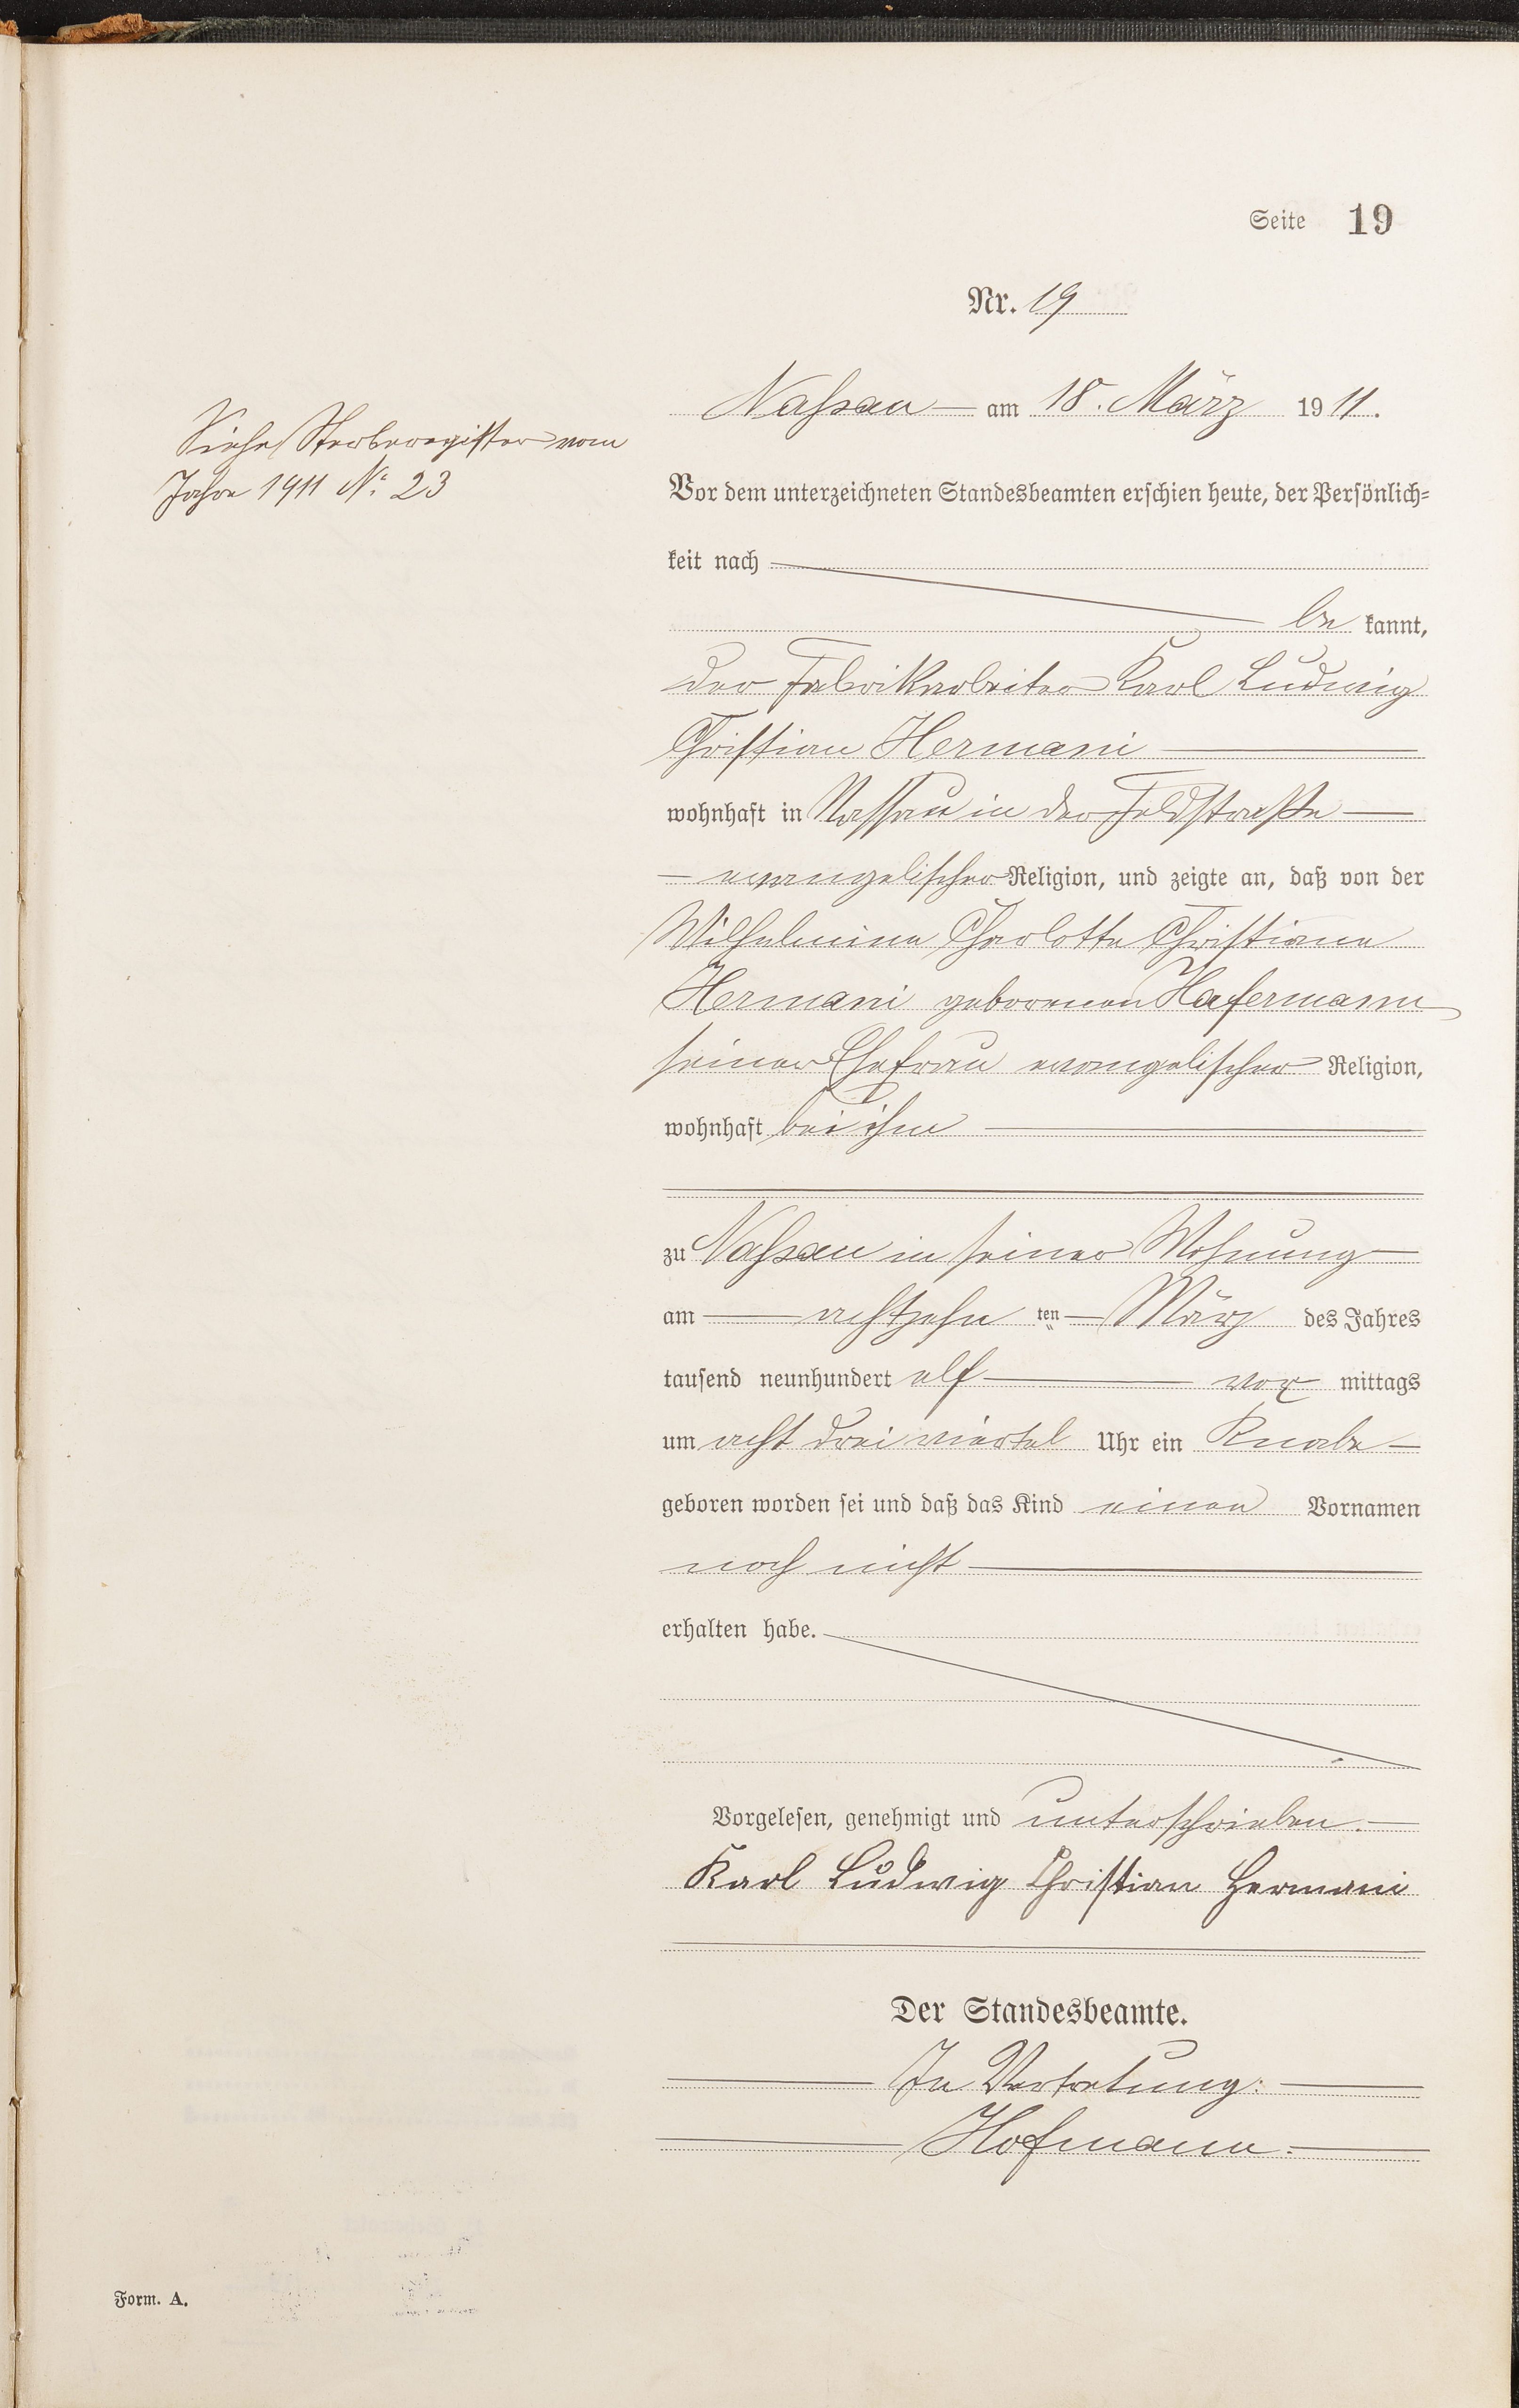 Seite 19
Nr. 19
Siehe Sterberegister vom
Jahre 1911 No. 23
Nassau — am 18. März 1911.
Vor dem unterzeichneten Standesbeamten erschien heute, der Persönlich=
keit nach
be kannt,
der Fabrikarbeiter Karl Ludwig
Christian Hermani
wohnhaft in Nassau in der Feldstraße
evangelischer Religion, und zeigte an, daß von der
Wilhelmine Charlotte Christiane
Hermani geborenen Hafermann
seiner Ehefrau evangelischer Religion,
wohnhaft bei ihm
zu Nassau in seiner Wohnung
am achtzehn ten März des Jahres
tausend neunhundert elf vor mittags
um acht drei viertel Uhr ein Knabe
geboren worden sei und daß das Kind einen Vornamen
noch nicht
erhalten habe.
Vorgelesen, genehmigt und unterschrieben.
Karl Ludwig Christian Hermani
Der Standesbeamte.
In Vertretung:
Hofmann.
Form. A.